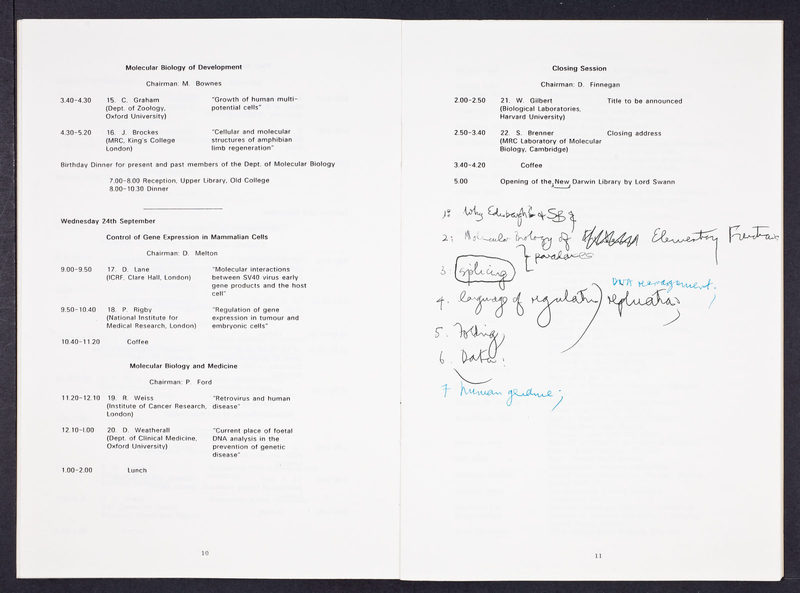 Molecular Biology of Development
Chairman: M. Bownes
3.40-4.30 15. C. Graham "Growth of human multi-
(Dept. of Zoology, potential cells"
Oxford University)
4.30-5.20 16. J. Brockes "Cellular and molecular
(MRC, King's College structures of amphibian
London) limb regeneration"
Birthday Dinner for present and past members of the Dept. of Molecular Biology
7.00-8.00 Reception, Upper Library, Old College
8.00-10.30 Dinner
Wednesday 24th September
Control of Gene Expression in Mammalian Cells
Chairman: D. Melton
9.00-9.50 17. D. Lane "Molecular interactions
(ICRF, Clare Hall, London) between SV40 virus early
gene products and the host
cell"
9.50-10.40 18. P. Rigby "Regulation of gene
(National Institute for expression in tumour and
Medical Research, London) embryonic cells"
10.40-11.20 Coffee
Molecular Biology and Medicine
Chairman: P. Ford
11.20-12.10 19. R. Weiss "Retrovirus and human
(Institute of Cancer Research, disease"
London)
12.10-1.00 20. D. Weatherall "Current place of foetal
(Dept. of Clinical Medicine, DNA analysis in the
Oxford University) prevention of genetic
disease"
1.00-2.00 Lunch
10
Closing Session
Chairman: D. Finnegan
2.00-2.50 21. W. Gilbert Title to be announced
(Biological Laboratories,
Harvard University)
2.50-3.40 22. S. Brenner Closing address
(MRC Laboratory of Molecular
Biology, Cambridge)
3.40-4.20 Coffee
5.00 Opening of the New Darwin Library by Lord Swann
1: Why Edinburgh & SB
2: Molecular biology of Elementary
paradoxes
3 splicing
DNA management.
4. language of regulation replication
5. Folding
6. Data.
7 human genome;
11